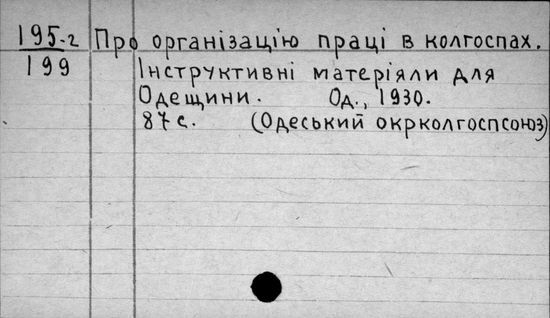 195-г Про організацію праці в колгоспах.
199 Інструктивні матеріяли для
Одещини. Од., 1930.
87 с. (Одеський окрколгоспсоюз)